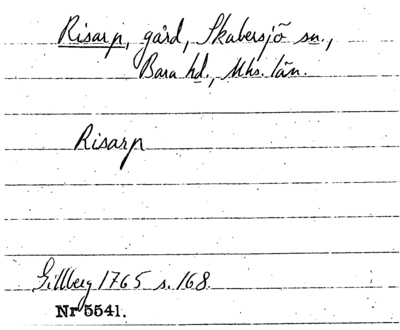 Risarp, gård, Skabersjö sn.,
Bara hd., Mhs. län.
Risarp
Gillberg 1765 s. 168.
Nr 5541.